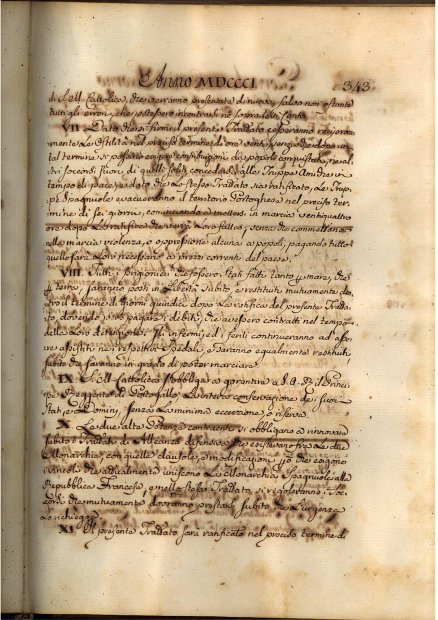 Anno MDCCCI 343
di S. M. Cattolica, che verranno presentate di nuovo, salvo non ostante
tutti gli errori, che potessero incontrarsi ne sopradetti conti.
VII. Dato che si firmi il presente Trattato cesseranno reciproca-
mente le Ostilità nel preciso termine di ore venti senza che dopo un
tal termine si possano esigere contribuzioni da popoli conquistati, ne al-
tri soccorsi fuori di quelli soliti concedersi alle Truppe Amiche in
tempo di pace, e dato che lo stesso Trattato sia ratificato, le Trup-
pe Spagnuole evacueranno il territorio Portoghese nel preciso ter-
mine di sei giorni, cominciando a mettersi in marcia ventiquattro
ore dopo la ratifica che verrà loro fatta, senza che commettano
nelle marcia violenza, o oppressione alcuna a popoli, pagando tutto
quello sarà loro necessario a prezzi correnti del paese.
VIII. Tutti i prigionieri che fossero stati fatti tanto p mare, che
p terra, saranno posti in libertà subito, e restituiti mutuamente den-
tro il termine di giorni quindici dopo la ratifica del presente Tratta-
to, dovendo però pagarsi i debiti, che avessero contratti nel tempo
della loro detenzione. Gl' infermi, ed i feriti continueranno ad esse-
re assistiti ne' rispettivi Spedali, e saranno egualmente restituiti
subito che saranno in grado di poter marciare.
IX. S. M. Cattolica s'obbliga a garantire a S. A. R. il Princi-
pe Reggente di Portogallo, la intera conservazione de' suoi
Stati, e Dominj, senza la minima eccezione, o riserva.
X. Le due alte Potenze contraenti si obbligano a rinnovare
subito i Trattati di Alleanza difensiva, che esistevano fra le due
Monarchie, con quelle clausole, e modificazioni, pò che esigono
i vincoli che attualmente uniscono la Monarchia Spagnuola alla
Repubblica Francese, e nello stesso Trattato si regoleranno i soc-
corsi che mutuamente dovranno prestarsi subito che l'urgenza
lo richiegga.
XI. Il presente Trattato sarà ratificato nel preciso termine di